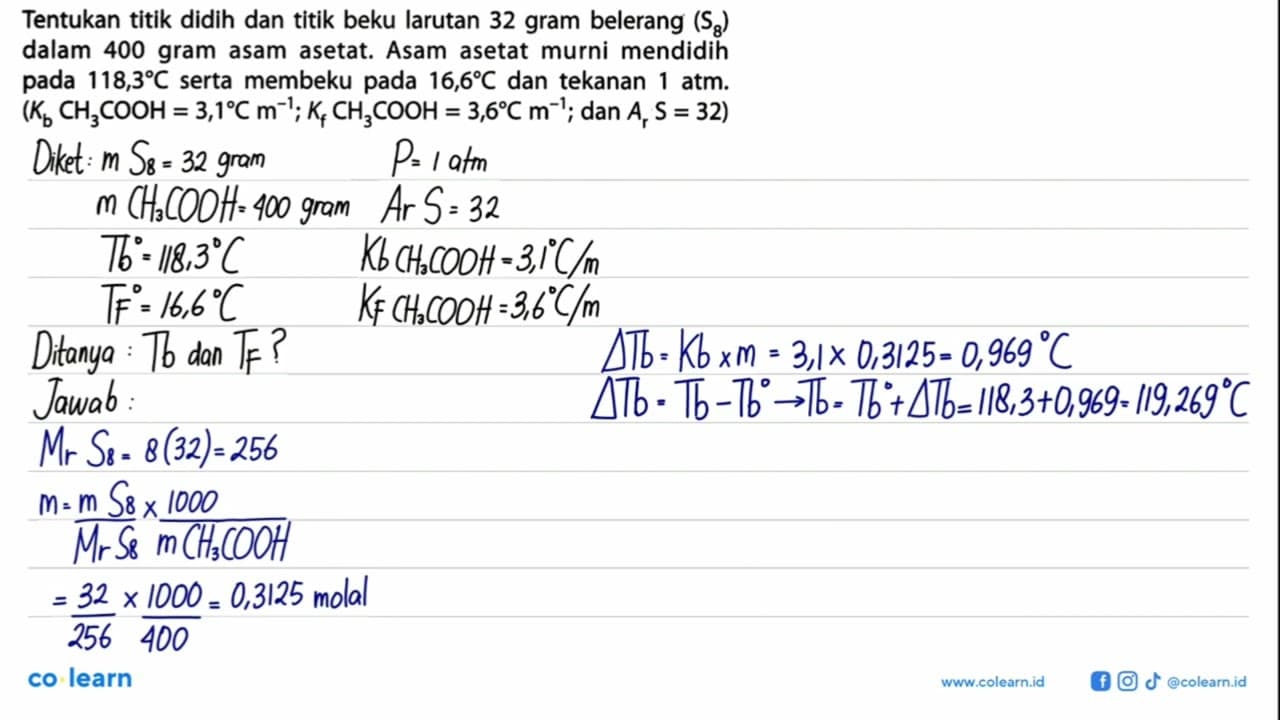 Tentukan titik didih dan titik beku larutan 32 gram belerang (S₈)
dalam 400 gram asam asetat. Asam asetat murni mendidih
pada 118,3°C serta membeku pada 16,6°C dan tekanan 1 atm.
(K_b CH₃COOH = 3,1°C m⁻¹; K_f CH₃COOH = 3,6°C m⁻¹; dan A_r S = 32)
Diket: m S₈ = 32 gram
P = 1 atm
m CH₃COOH = 400 gram
Ar S = 32
Tb° = 118,3°C
Kb CH₃COOH = 3,1°C/m
TF° = 16,6°C
KF CH₃COOH = 3,6°C/m
Ditanya : Tb dan TF?
Jawab :
Mr S₈ = 8(32) = 256
m = m S₈ / Mr S₈ × 1000 / m CH₃COOH
= 32/256 × 1000/400 = 0,3125 molal
ΔTb = Kb × m = 3,1 × 0,3125 = 0,969°C
ΔTb = Tb - Tb° → Tb = Tb° + ΔTb = 118,3 + 0,969 = 119,269°C
co·learn
www.colearn.id
@colearn.id